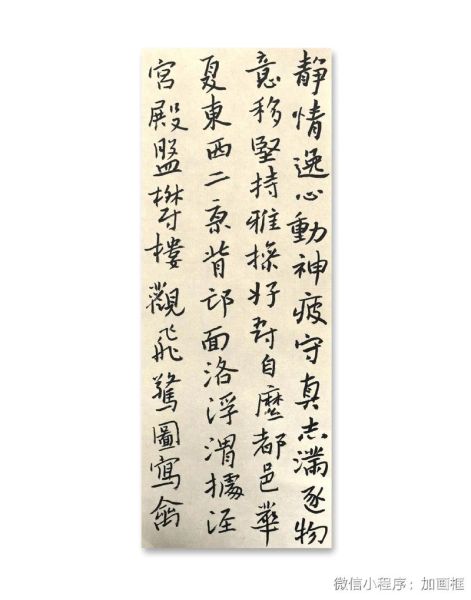 靜情逸心動神疲守真志滿逐物
意移堅持雅操好爵自縻都邑華
夏東西二京背邙面洛浮渭據涇
宮殿盤欝樓觀飛驚圖寫禽
微信小程序：加画框